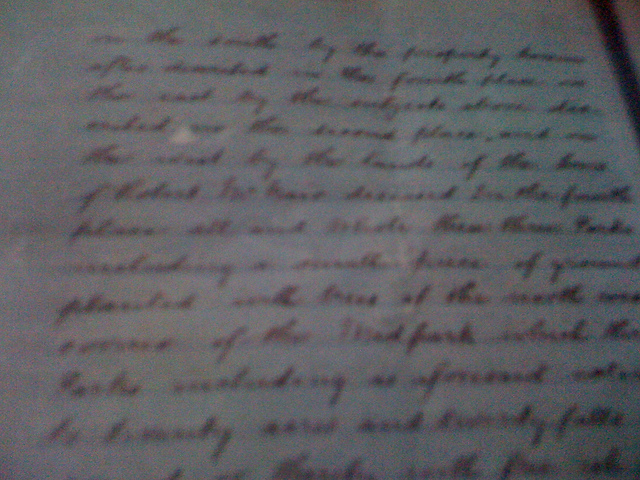 on the south by the property herein
after described in the fourth place on
the east by the subjects above des-
cribed in the second place and on
the west by the lands of the heirs
of Robert McNair deceased In the fourth
place all and Whole these three Parks
including a small piece of ground
planted with trees at the north west
corner of the Midpark which three
Parks including as aforesaid
to twenty acres and twenty falls
thereby with free